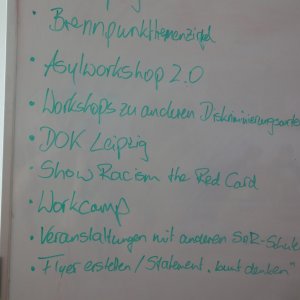 • Asylworkshop 2.0
• Workshops zu anderen Diskriminierungsarten
• DOK Leipzig
• Show Racism the Red Card
• Workcamp
• Veranstaltungen mit anderen SoR-Schule
• Flyer erstellen / Statement „bunt denken"